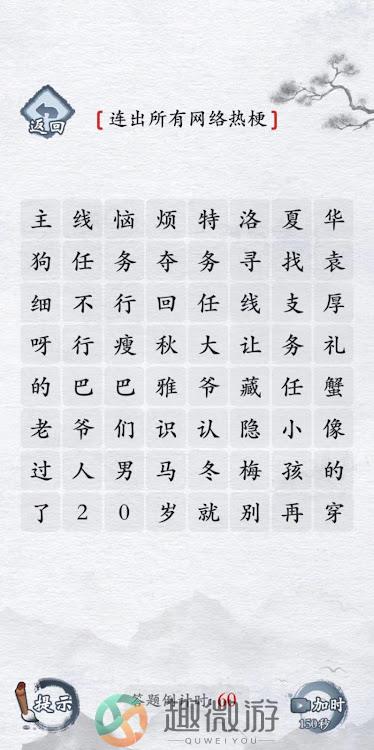 返回
[连出所有网络热梗]
主线恼烦特洛夏华
狗任务夺务寻找袁
细不行回任线支厚
呀行瘦秋大让务礼
的巴巴雅爷藏任蟹
老爷们识认隐小像
过人男马冬梅孩的
了20岁就别再穿
提示
答题倒计时 60
加时
150秒
趣微游
QUWEIYOU